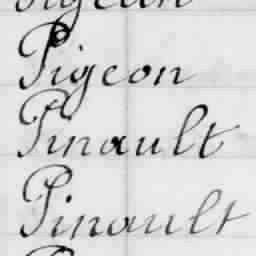 Pigeon
Pinault
Pinault